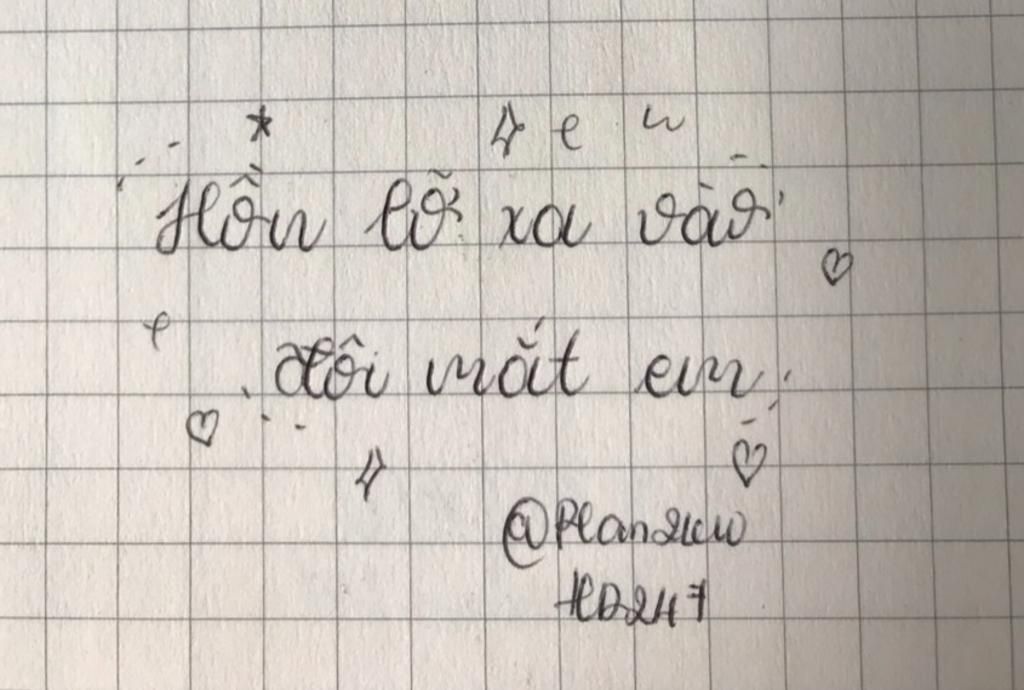 Hồn lỡ xa vào
Đôi mắt em
HD247